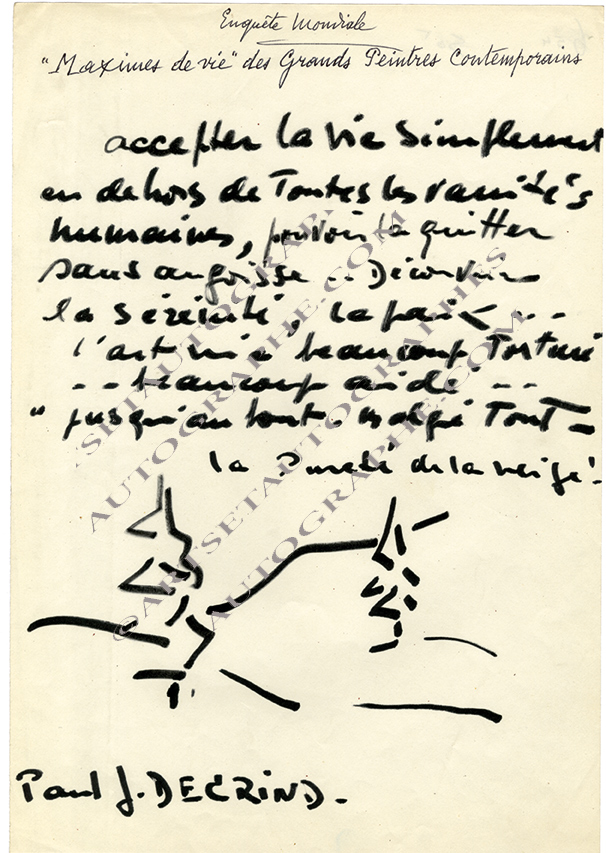 Enquête Mondiale
"Maximes de vie" des Grands Peintres Contemporains
accepter la vie simplement
en dehors de toutes les vanités
humaines, pouvoir la quitter
sans angoisse .. Découvrir
la sérénité, la paix - - -
l'art m'a beaucoup torturé
- - beaucoup aidé - - -
" jusqu'au bout - malgré tout -
la Pureté de la neige!
Paul J. DECRIND.
©ARTSETAUTOGRAPHES
AUTOGRAPHE.COM
©ARTSETAUTOGRAPHES
AUTOGRAPHE.COM